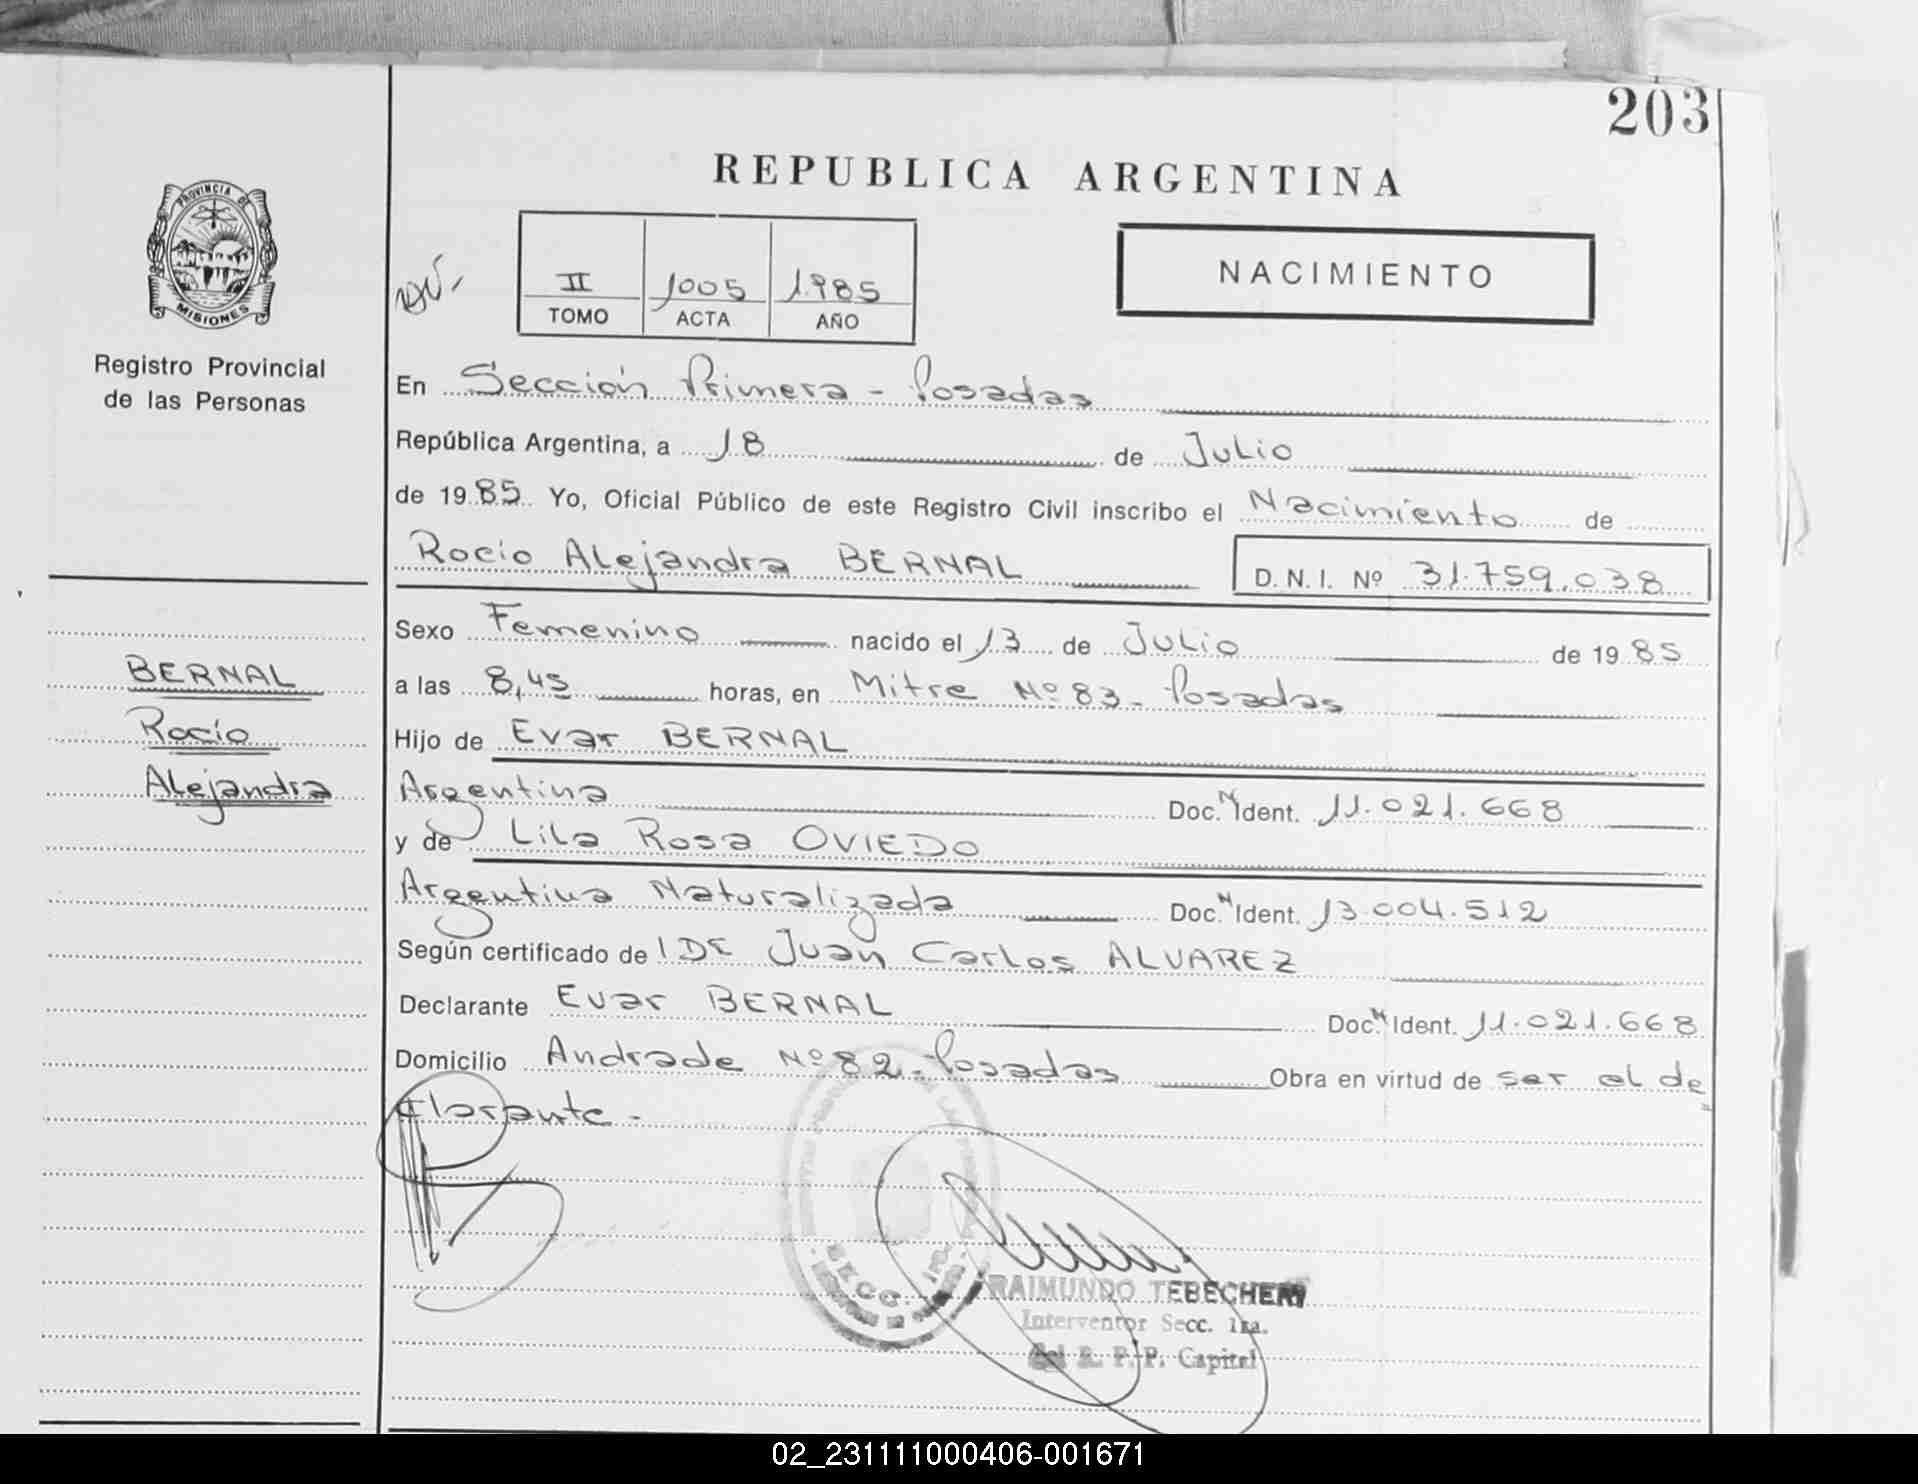 203
REPUBLICA ARGENTINA
PROVINCIA DE
MISIONES
Registro Provincial
de las Personas
II 1005 1985
TOMO ACTA AÑO
NACIMIENTO
En Sección Primera - Posadas
República Argentina, a 18 de Julio
de 1985 Yo, Oficial Público de este Registro Civil inscribo el Nacimiento de
Rocío Alejandra BERNAL D.N.I. Nº 31.759.038
Sexo Femenino nacido el 13 de Julio de 1985
a las 8,45 horas, en Mitre Nº 83 - Posadas
Hijo de Evar BERNAL
Argentina Doc. N Ident. 11.021.668
y de Lila Rosa OVIEDO
Argentina Naturalizada Doc. N Ident. 13.004.512
Según certificado de IDE Juan Carlos ALVAREZ
Declarante Evar BERNAL Doc. N Ident. 11.021.668
Domicilio Andrade Nº 82 - Posadas Obra en virtud de ser el de
clarante -
BERNAL
Rocío
Alejandra
SECC. 1ra.
RAIMUNDO TEBECHERY
Interventor Secc. 1ra.
del R. P. P. Capital
02_231111000406-001671